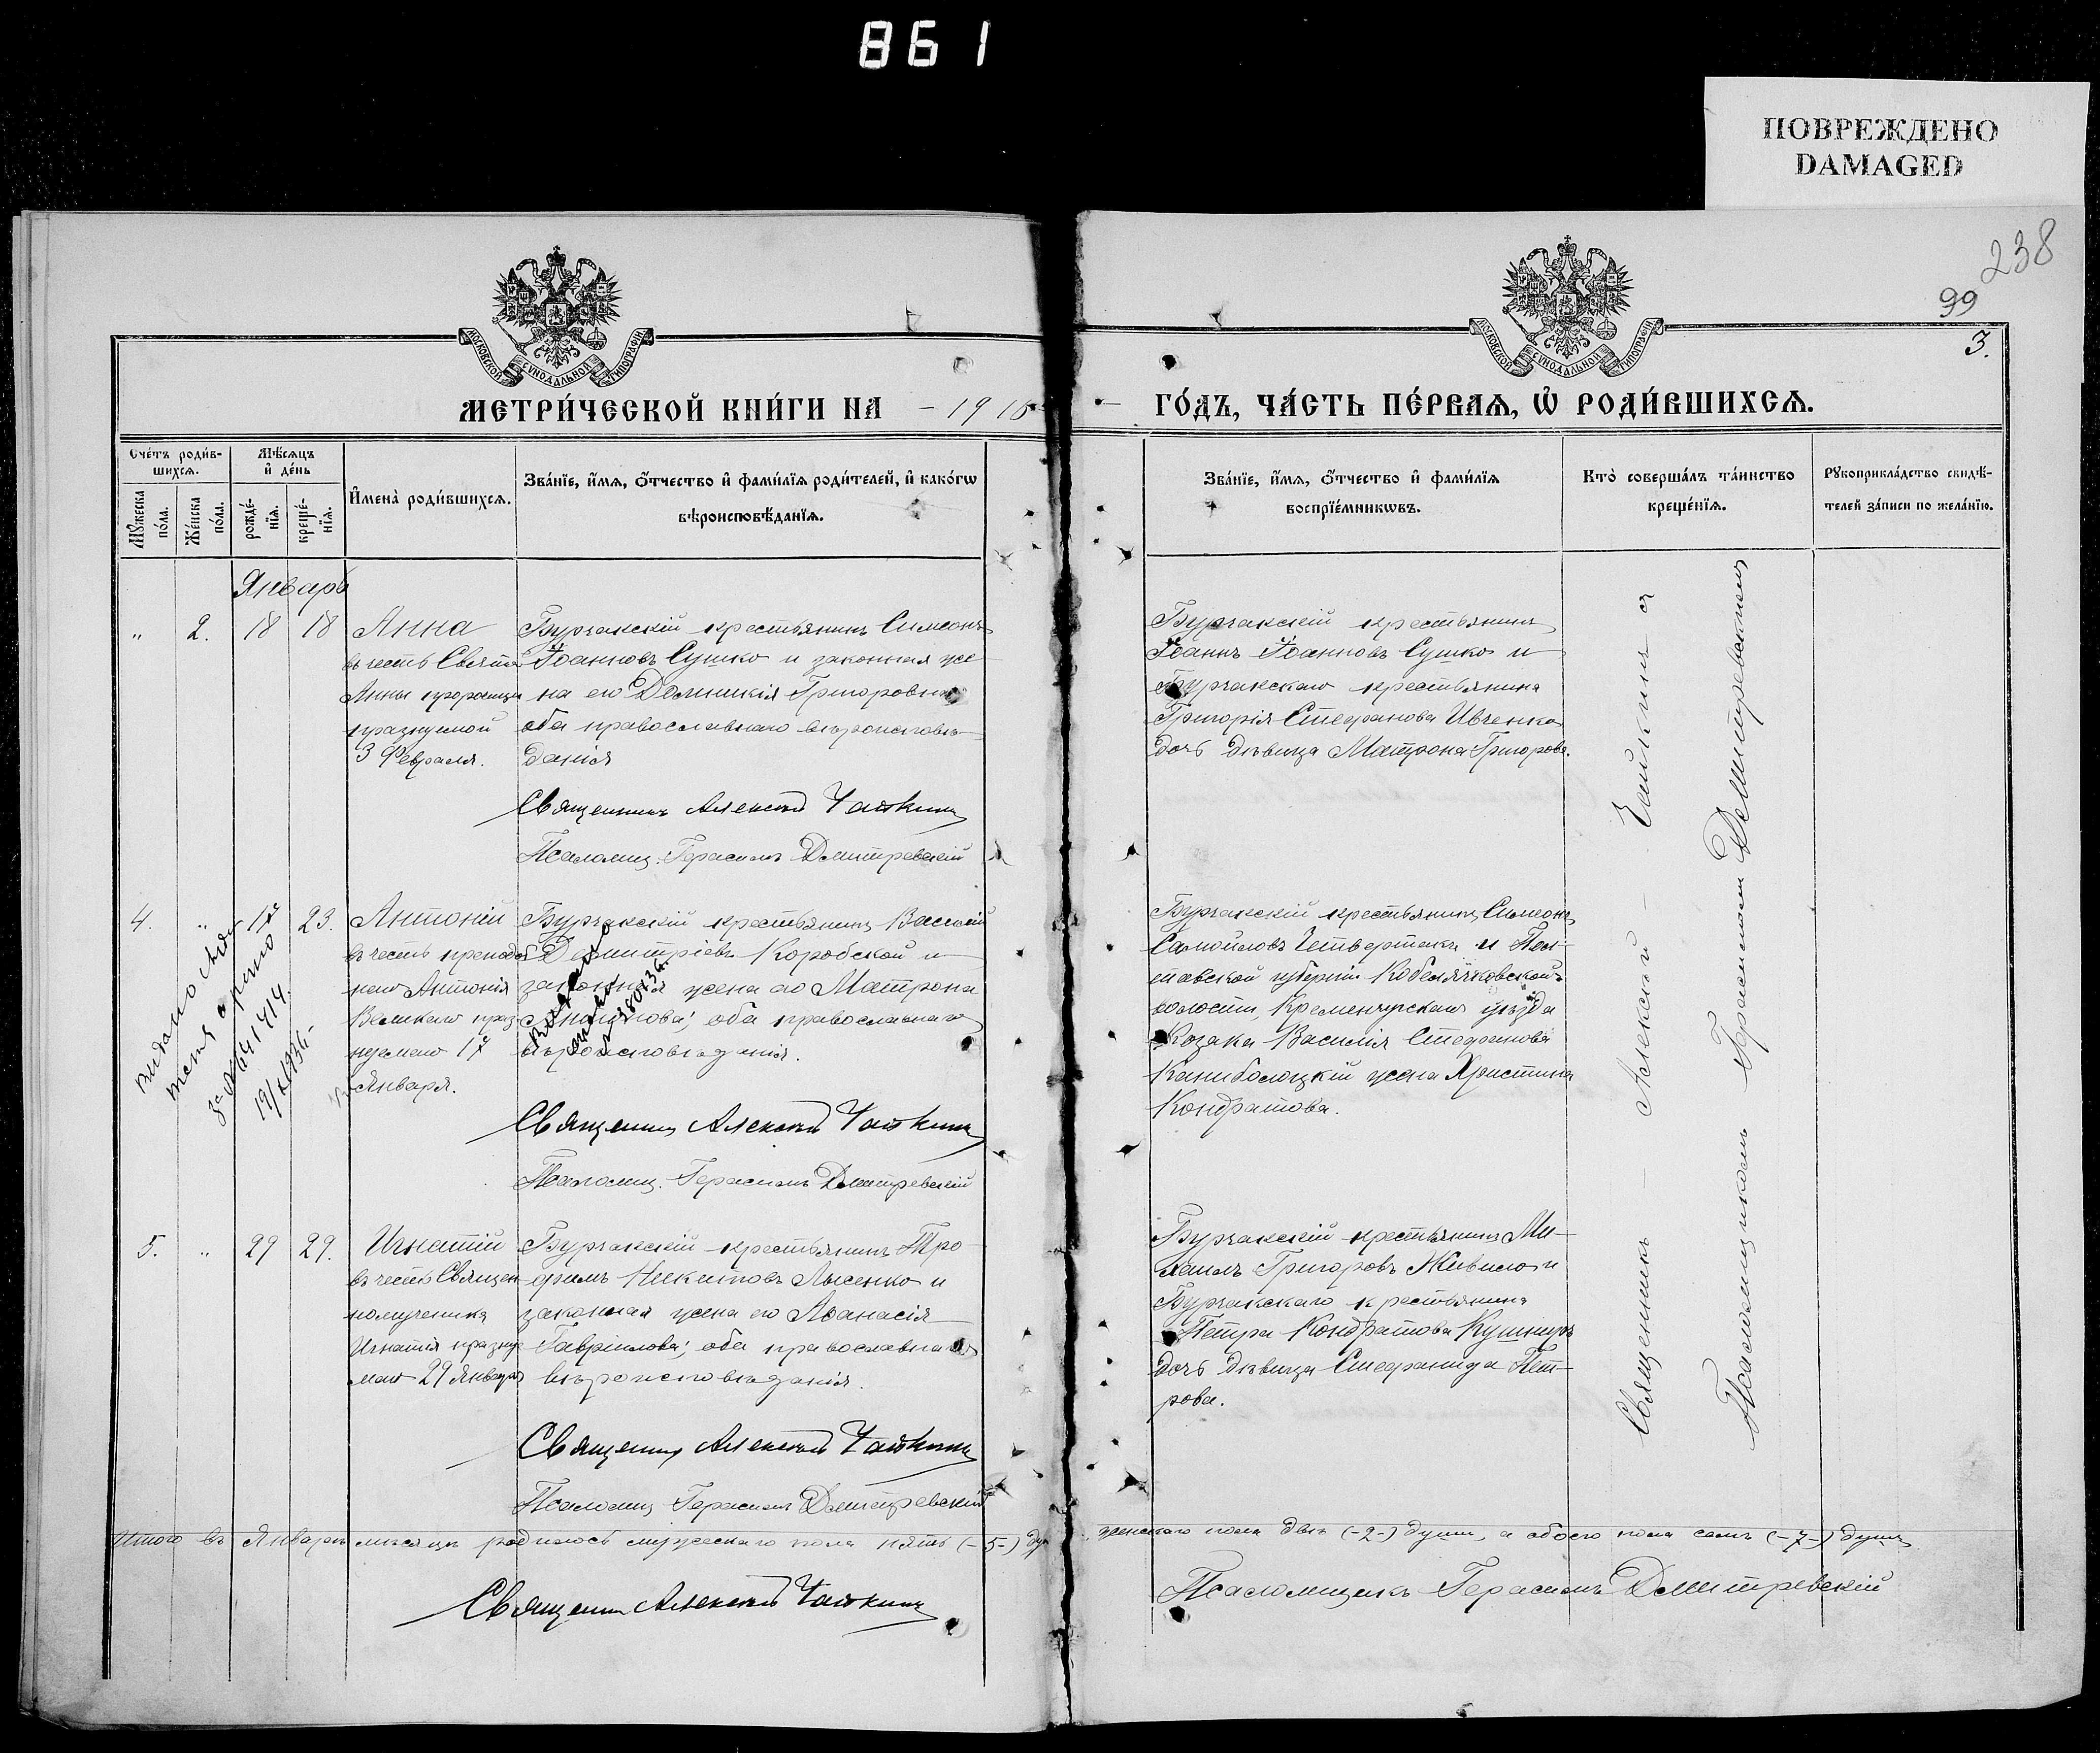 861
ПОВРЕЖДЕНО
DAMAGED
238
99
3.
МОСКОВСКОЙ СѴНОДАЛЬНОЙ ТИПОГРАФІИ
МОСКОВСКОЙ СѴНОДАЛЬНОЙ ТИПОГРАФІИ
МЕТРИ́ЧЕСКОЙ КНИ́ГИ НА - 1916
ГО́ДЪ, ЧА́СТЬ ПЕ́РВАѦ, Ѽ РОДИ́ВШИХСѦ.
Сче́тъ роди́в-
шихсѧ.
Мꙋ́жеска
по́ла.
Же́нска
по́ла.
Мѣ́сѧцъ
и҆ де́нь
рожде́-
нїѧ.
креще́-
нїѧ.
И҆мена̀ роди́вшихсѧ.
Зва́нїе, и҆́мѧ, ѻ҆́тчество и҆ фами́лїѧ роди́телей, и҆ како́гѡ
вѣроисповѣ́данїѧ.
Зва́нїе, и҆́мѧ, ѻ҆́тчество и҆ фами́лїѧ
воспрїе́мникѡвъ.
Кто̀ соверша́лъ та́инство
креще́нїѧ.
Рꙋкоприкла́дство свидѣ́-
телей за́писи по жела́нїю.
Январь
" 2. 18 18 Анна
въ честь Святой
Анны пророчицы
празнуемой
3 Февраля.
Бурчакскій крестьянинъ Симеонъ
Іоанновъ Сушко и законная же-
на его Домникія Григоровна
оба православнаго вѣроисповѣ-
данія
Священникъ Алексѣй Чайкинъ
Псаломщ. Герасимъ Дмитревскій
Бурчакскій крестьянинъ
Іоаннъ Іоанновъ Сушко и
Бурчакскаго крестьянина
Григорія Стефанова Ивченко
дочь дѣвица Матрона Григорова.
4. " 17 23. Антоній
въ честь преподоб
наго Антонія
Великаго праз-
нуемаго 17
Января.
Бурчакскій крестьянинъ Василій
Димитріевъ Коробской и
законная жена его Матрона
оба православнаго
вѣроисповѣданія.
Священникъ Алексѣй Чайкинъ
Псаломщ. Герасимъ Дмитревскій
Бурчакскій крестьянинъ Симеонъ
Самойловъ Четвертакъ и Пол-
тавской губерніи Кобелячковской
волости Кременчугскаго уѣзда
Козака Василія Стефанова
жена Христина
Кондратова.
видано
1936
5. " 29 29. Игнатій
въ честь Священ-
номученика
Игнатія празнуе
маго 29 Января
Бурчакскій крестьянинъ Тро-
фимъ Никитовъ Лысенко и
законная жена его Афанасія
Гавріилова; оба православнаго
вѣроисповѣданія.
Священникъ Алексѣй Чайкинъ
Псаломщ. Герасимъ Дмитревскій
Бурчакскій крестьянинъ Ми-
хаилъ Григоровъ Живило и
Бурчакскаго крестьянина
Петра Кондратова Кушниръ
дочь дѣвица Стефанида Пет-
рова.
Священникъ - Алексѣй - Чайкинъ и
Псаломщикомъ Герасимомъ Дмитревскимъ
Итого въ Январѣ мѣсяцѣ родилось мужескаго пола пять (-5-) ду
женскаго пола двѣ (-2-) души, а обоего пола семь (-7-) душъ
Священникъ Алексѣй Чайкинъ
Псаломщикъ Герасимъ Дмитревскій